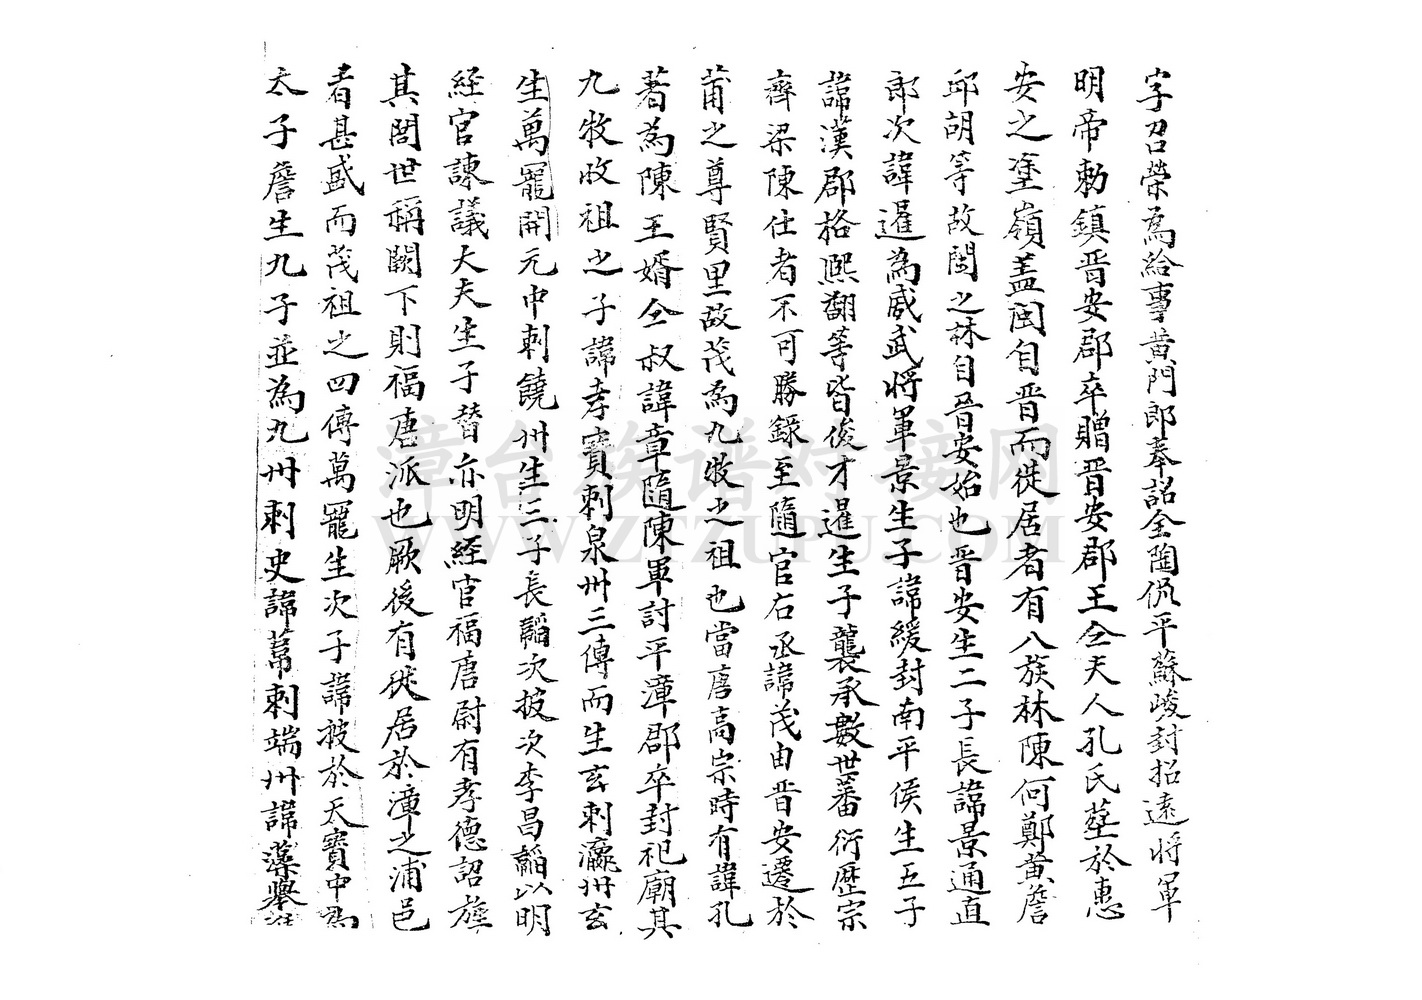 字召榮為給事黄門郎奉詔仝陶侃平蘇峻封招遠將軍
明帝勅鎮晋安郡卒贈晋安郡王仝夫人孔氏塟於惠
安之塗嶺盖闽自晋而徙居者有八族林陳何鄭黄詹
邱胡等故闽之林自晉安始也晋安生二子長諱景通直
郎次諱暹為威武将軍景生子諱緩封南平侯生五子
諱漢郡格熈翻等皆俊才暹生子襲承數世蕃衍歴宗
齊梁陳仕者不可勝錄至隨官右丞諱茂由晋安遷於
莆之尊賢里故茂為九牧之祖也當唐高宗時有諱孔
著為陳王婿仝叔諱章隨陳軍討平漳郡卒封祀廟其
九牧收祖之子諱孝寳刺泉州三傳而生玄刺瀛州玄
生萬寵開元中刺饒州生三子長韜次披次李昌韜以明
経官諫議大夫生子替亦明経官福唐尉有孝德詔旌
其閭世稱闕下則福唐派也厥後有徙居於漳之浦邑
者甚盛而茂祖之四傳萬寵生次子諱披於天寳中為
太子詹生九子並為九州刺史諱葦刺端州諱藻舉
漳台族谱对接网
WWW.ZTZUPU.COM